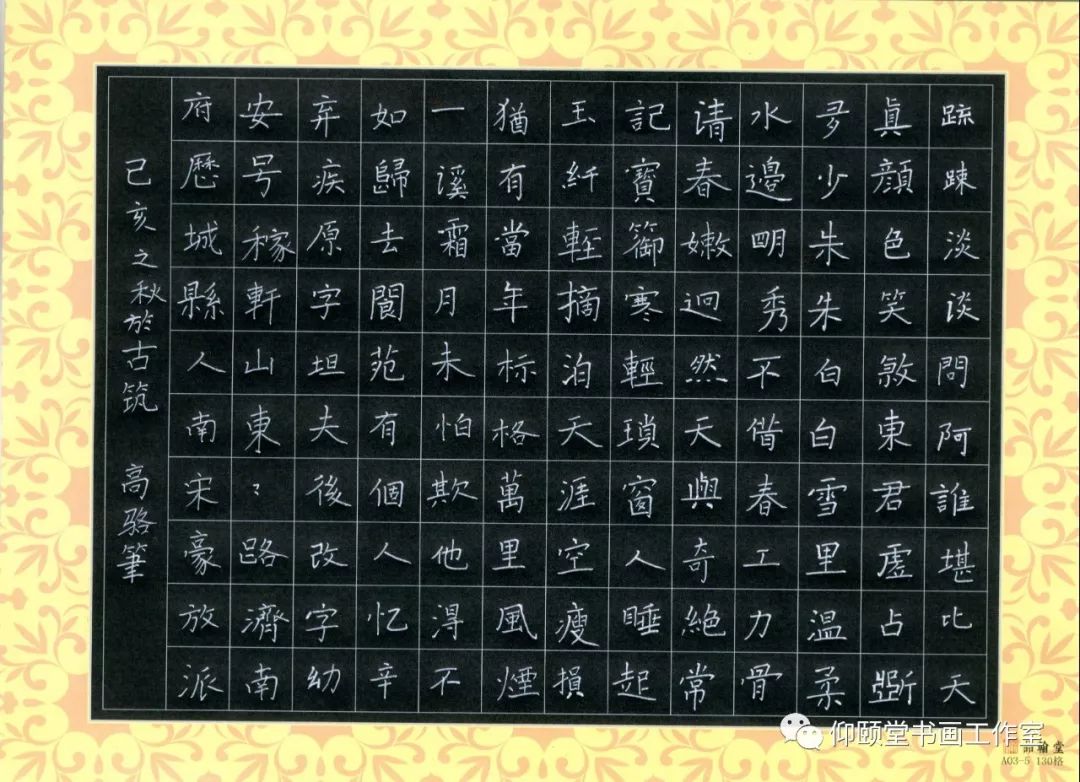 疏疎淡谈問阿誰堪比天
真顔色笑煞東君虚占斷
多少朱朱白白雪里温柔
水邊明秀不借春工力骨
请春嫩迥然天與奇絶常
記寶籞寒輕瑣窗人睡起
玉纤輕摘泊天涯空瘦損
猶有當年标格萬里風煙
一溪霜月未怕欺他得不
如歸去閬苑有個人忆辛
弃疾原字坦夫後改字幼
安号稼軒山東路濟南
府歷城縣人南宋豪放派
己亥之秋於古筑 高骆筆
仰颐堂书画工作室
翰堂
A03-5 130格